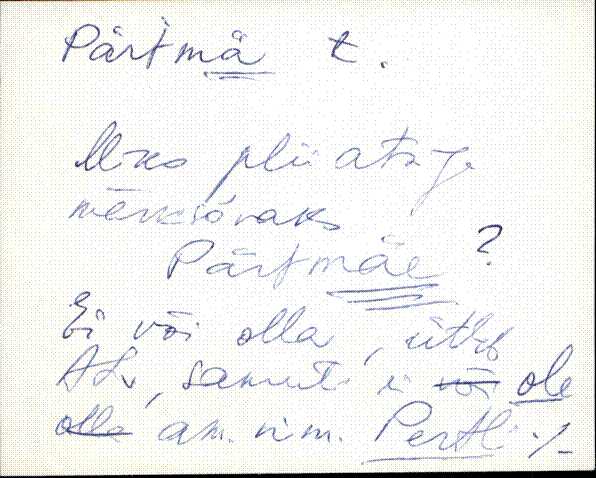 Pärtmä t.
pliiatsiga
märksõnaks
Pärtmäe ?
Ei või olla, ütleb
AS, samuti ei või ole
olla am. nim. Pertli ./.